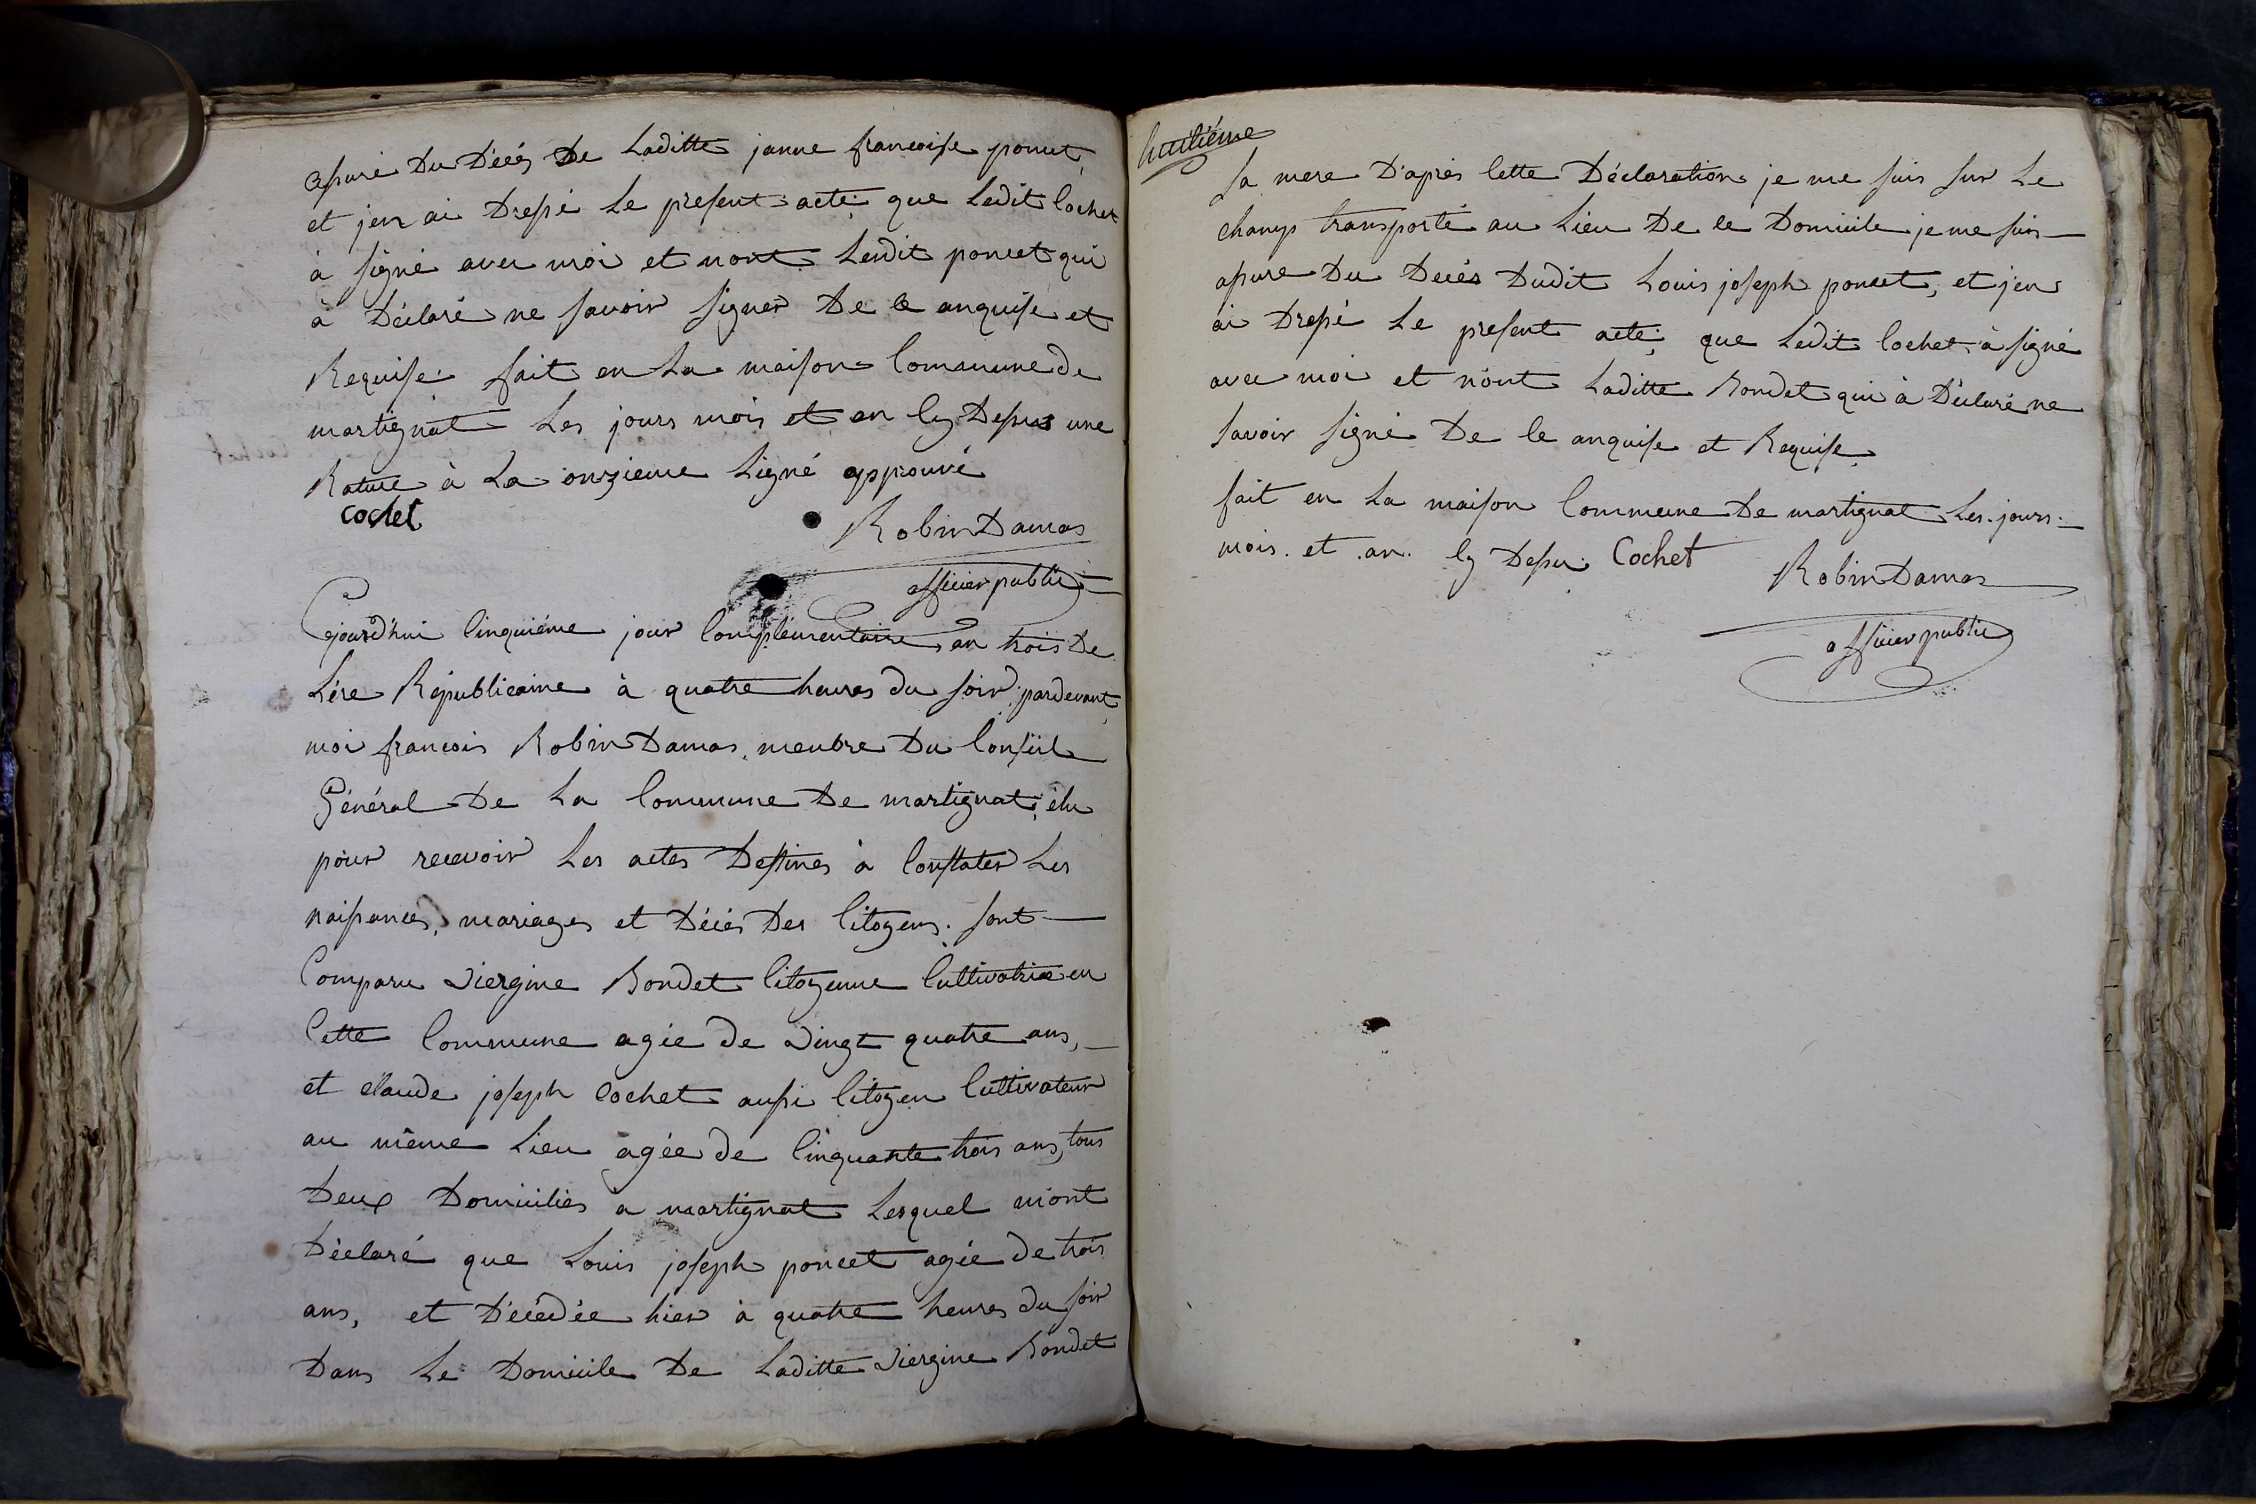 assuré Du Décés De Laditte janne francoise poncet,
et jen ai Dressé Le present acte, que Ledit Cochet
à signé avec moi et nont Lendit poncet qui
à Déclaré ne savoir signer De ce anquise et
Requise. fait en La maison Comunune de
martignat Les jours mois et an Cy Dessus une
Rature à La onzieme Ligné approuvé
cochet
Robin Damas
officier public
Cejourd'hui Cinquiéme jour Complémentaire an trois De
Lére Républicaine à quatre heures du soir, pardevant
moi francois Robin Damas, menbre Du Conseil
Général De La Commune De martignat, élu
pour recevoir Les actes Destines à Constater Les
naissances, mariages et Décés Des Citoyens. sont
Comparu Viergine Bondet Citoyenne Cultivatrice en
Cette Commune agée de Vingt quatre ans,
et claude joseph Cochet aussi Citoyen Cultivateur
au même Lieu agée de Cinquante trois ans, tous
Deux Domiciliés à martignat Lesquel mont
Déclaré que Louis joseph poncet agée de trois
ans, et Décédée hier à quatre heures du soir
Dans Le Domicile De Laditte Viergine Bondet
huitiéme
sa mere D'apres Cette Déclaration je me suis sur Le
champ transporté au Lieu De ce Domicile je me suis
assure Du Decés Dudit Louis joseph poncet, et jen
ai Dressé Le present acte, que Ledit Cochet à signé
avec moi et n'ont Laditte Bondet qui à Déclaré ne
savoir signé De ce anquise et Requise.
fait en La maison Commune De martignat Les jours
mois et an Cy Dessu. Cochet
Robin Damas
officier public